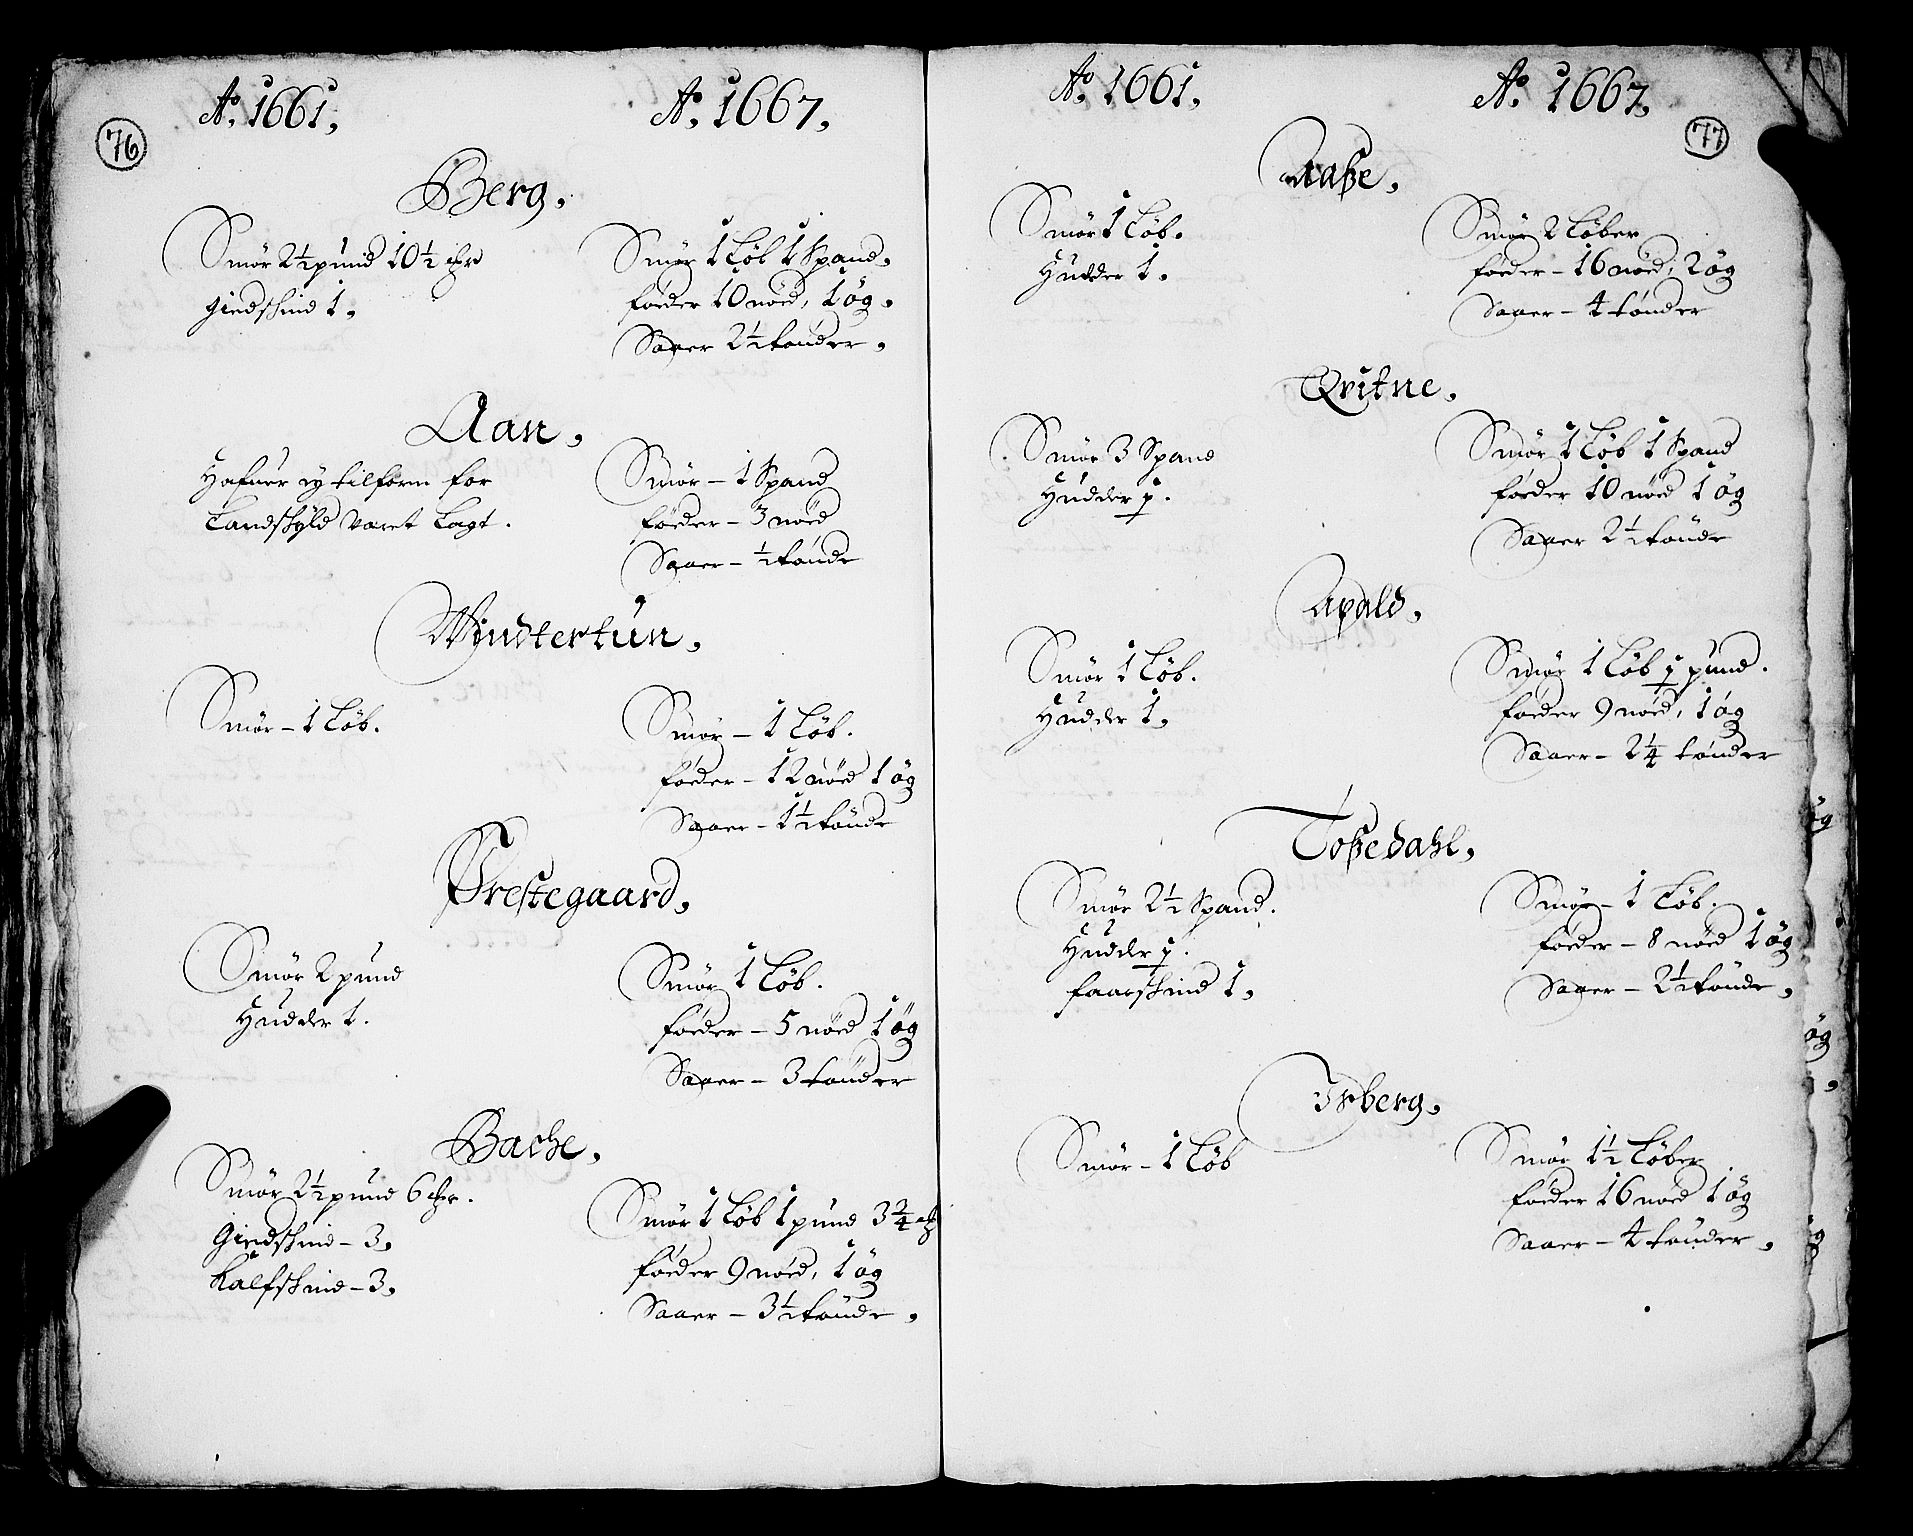 76
Ao. 1661,
Ao. 1667,
Berg,
Smör 2½ pund 10½
giedskind 1,
Smör 1 Löb 1 Spand,
föeder 10 nöed, 1 øg,
Saaer 2½ tönder,
Aan,
Hafuer ey tilforn for
Landskyld varet Lagt.
Smör – 1 Spand
föeder – 3 nöed
Saaer – ½ tönde
Windtertun,
Smör – 1 Löb.
Smör – 1 Löb.
föeder – 12 nöed 1 øg
Saaer – 1½ tönde
Prestegaard,
Smör 2 pund
Hudder 1.
Smör 1 Löb.
föeder – 5 nöed 1 øg
Saaer – 3 tönder
Bache,
Smör 2½ pund 6
Giedskind – 3,
Kalfskind – 3,
Smör 1 Löb 1 pund 3¾
föeder 9 nöed, 1 øg
Saaer – 3½ tönde,
77
Ao. 1661,
Ao. 1667,
Aaße,
Smör 1 Löb.
Hudder 1.
Smör 2 Löber
föeder – 16 nöed, 2 øg
Saaer – 4 tönder
Qvitne,
Smör 3 Spand
Hudder ½.
Smör 1 Löb 1 Spand
föeder 10 nöed 1 øg
Saaer 2½ tönde
Apald,
Smör 1 Löb.
Hudder 1,
Smör 1 Löb ½ pund.
föeder 9 nöed, 1 øg
Saaer – 2¼ tönder
Toßedahl,
Smör 2½ Spand.
Hudder ½.
faarskind 1,
Smör – 1 Löb.
föeder – 8 nöed 1 øg
Saaer – 2½ tönde,
Irberg,
Smör – 1 Löb
Smör 1½ Löber
föeder 16 nöed 1 øg
Saaer – 4 tönder,
øg
øg